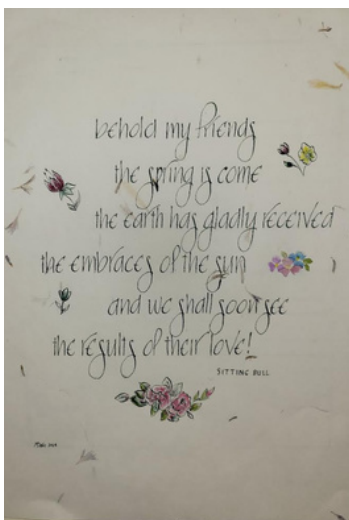 behold my friends
the spring is come
the earth has gladly received
the embraces of the sun
and we shall soon see
the results of their love!
SITTING BULL